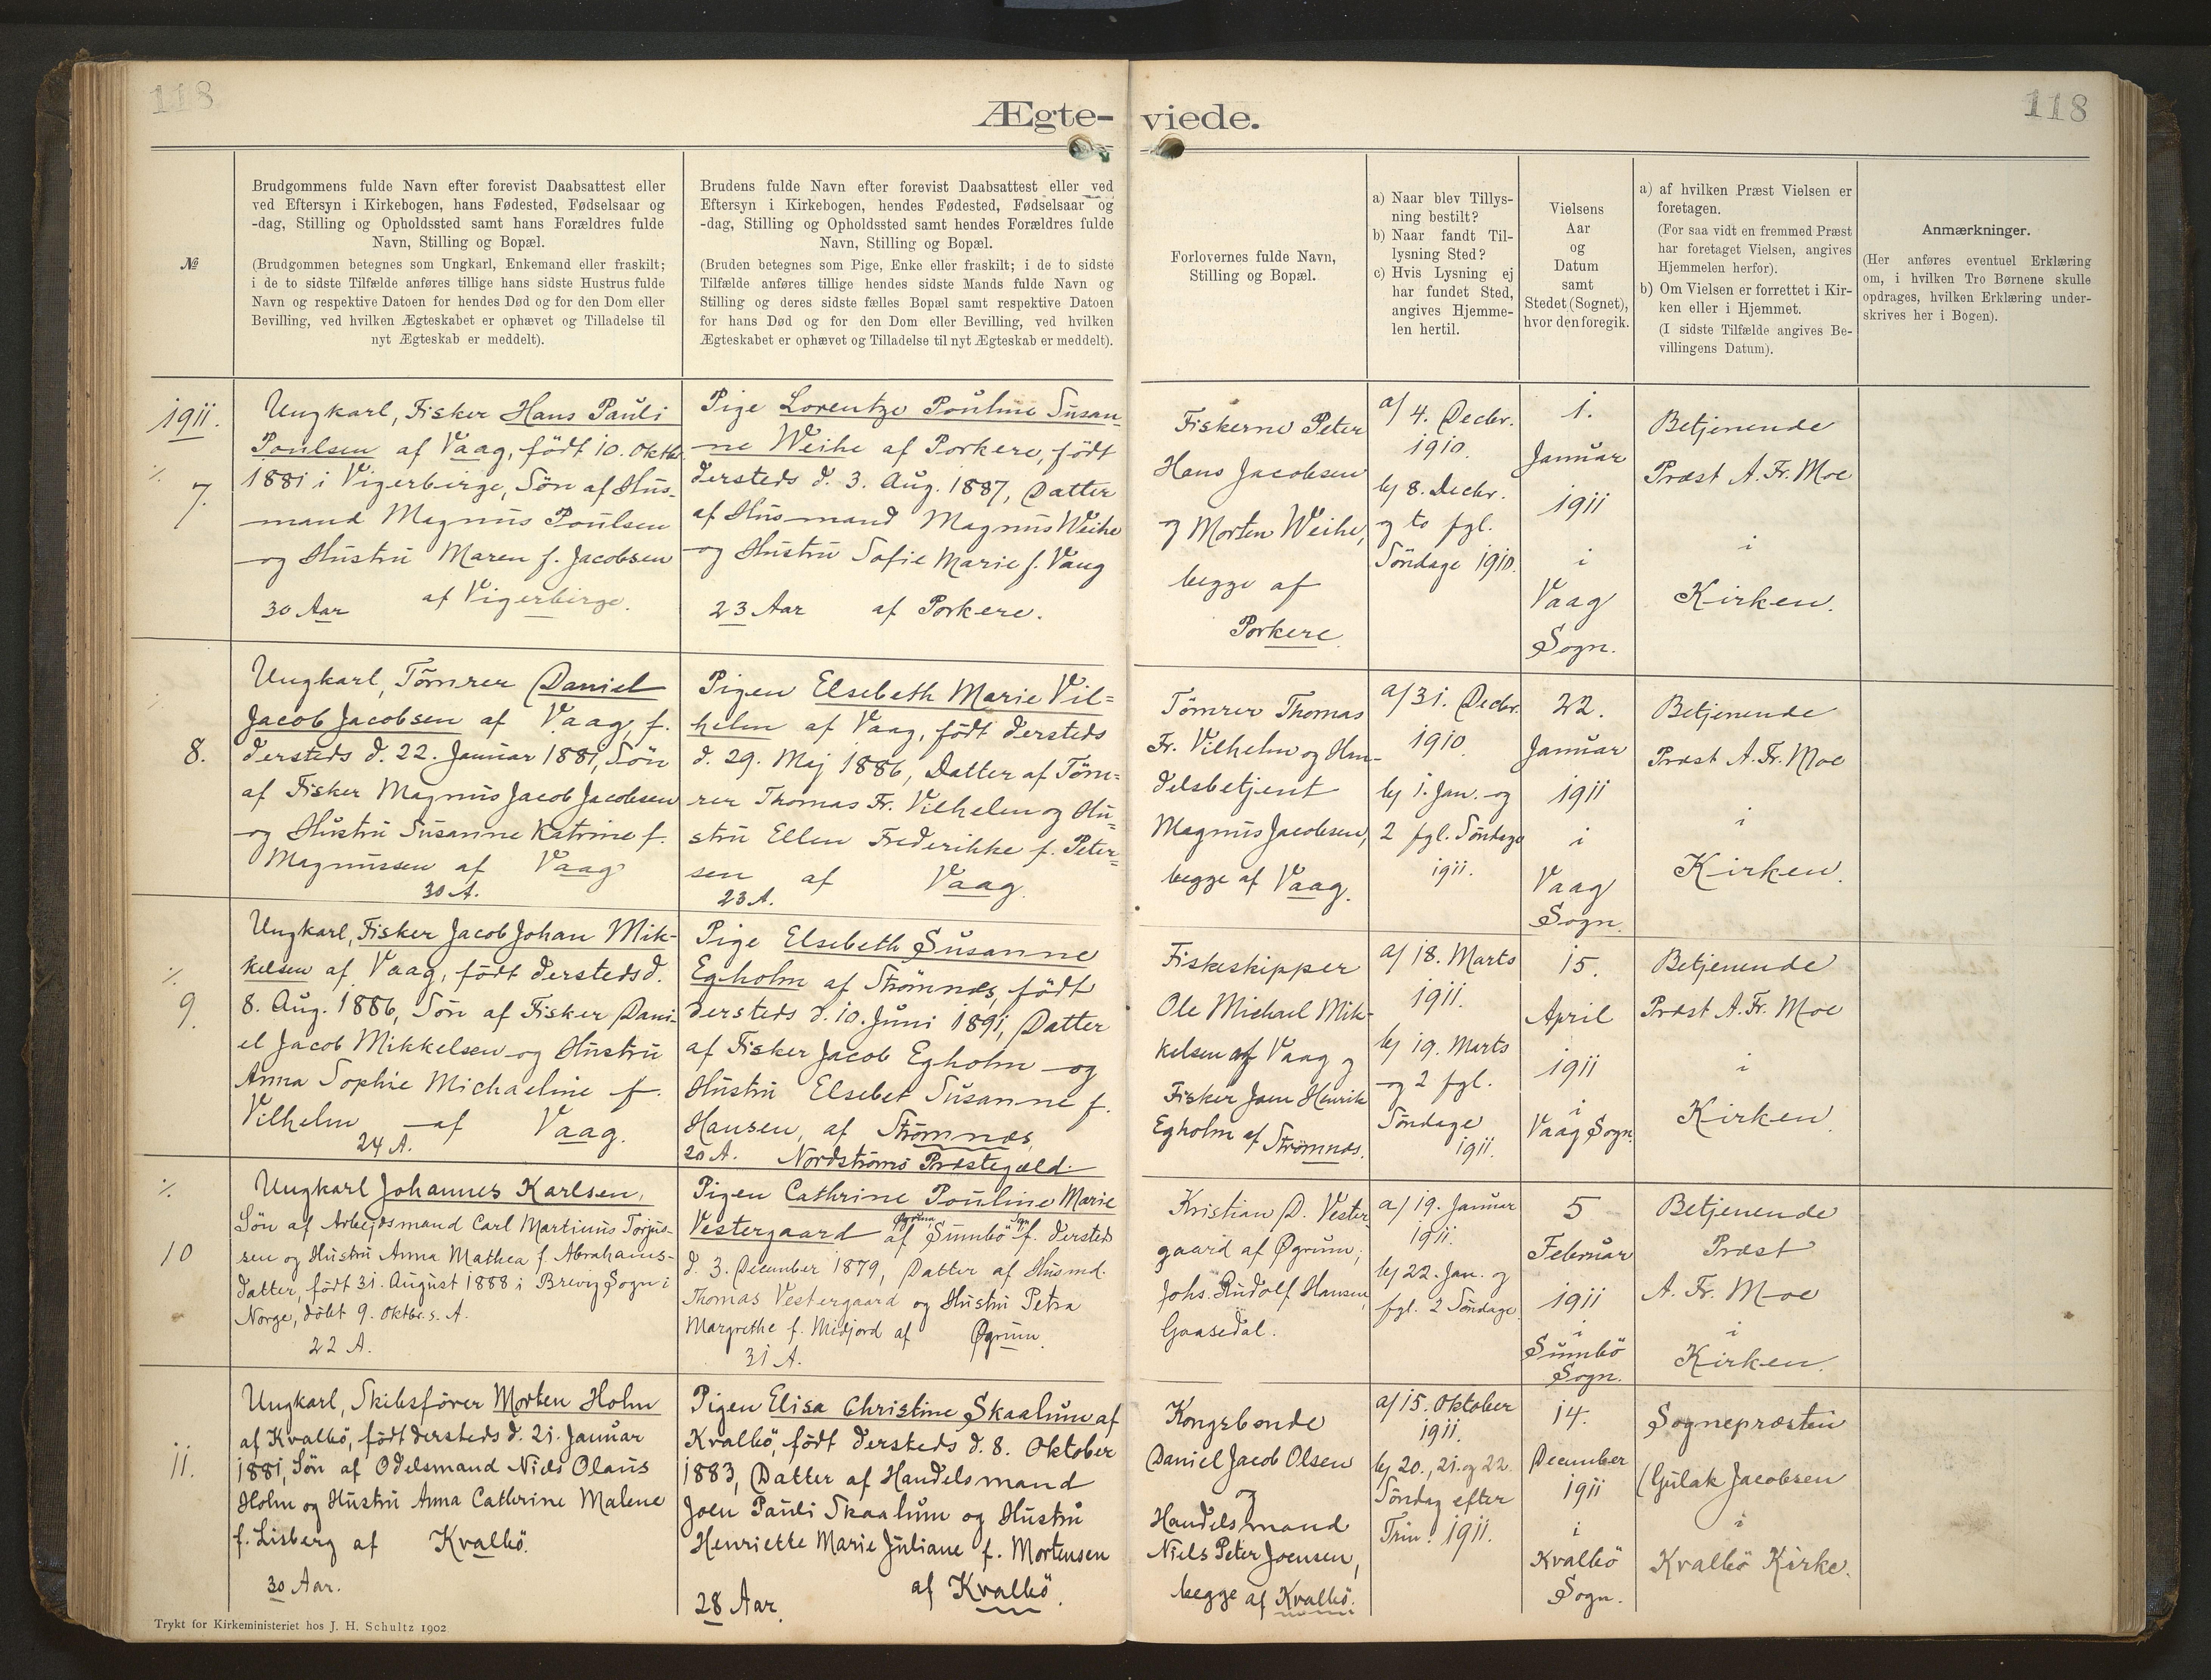 118
118
Ægte-viede.
№
Brudgommens fulde Navn efter forevist Daabsattest eller
ved Eftersyn i Kirkebogen, hans Fødested, Fødselsaar og
-dag, Stilling og Opholdssted samt hans Forældres fulde
Navn, Stilling og Bopæl.
(Brudgommen betegnes som Ungkarl, Enkemand eller fraskilt;
i de to sidste Tilfælde anføres tillige hans sidste Hustrus fulde
Navn og respektive Datoen for hendes Død og for den Dom eller
Bevilling, ved hvilken Ægteskabet er ophævet og Tilladelse til
nyt Ægteskab er meddelt).
Brudens fulde Navn efter forevist Daabsattest eller ved
Eftersyn i Kirkebogen, hendes Fødested, Fødselsaar og
-dag, Stilling og Opholdssted samt hendes Forældres fulde
Navn, Stilling og Bopæl.
(Bruden betegnes som Pige, Enke eller fraskilt; i de to sidste
Tilfælde anføres tillige hendes sidste Mands fulde Navn og
Stilling og deres sidste fælles Bopæl samt respektive Datoen
for hans Død og for den Dom eller Bevilling, ved hvilken
Ægteskabet er ophævet og Tilladelse til nyt Ægteskab er meddelt).
Forlovernes fulde Navn,
Stilling og Bopæl.
a) Naar blev Tillys-
ning bestilt?
b) Naar fandt Til-
lysning Sted?
c) Hvis Lysning ej
har fundet Sted,
angives Hjemme-
len hertil.
Vielsens
Aar
og
Datum
samt
Stedet (Sognet),
hvor den foregik.
a) af hvilken Præst Vielsen er
foretagen.
(For saa vidt en fremmed Præst
har foretaget Vielsen, angives
Hjemmelen herfor).
b) Om Vielsen er forrettet i Kir-
ken eller i Hjemmet.
(I sidste Tilfælde angives Be-
villingens Datum).
Anmærkninger.
(Her anføres eventuel Erklæring
om, i hvilken Tro Børnene skulle
opdrages, hvilken Erklæring under-
skrives her i Bogen).
1911.
7.
Ungkarl, Fisker Hans Pauli
Poulsen af Vaag, født 10. Oktbr
1881 i Vigerbirge, Søn af Hus-
mand Magnus Poulsen
og Hustru Maren f. Jacobsen
30 Aar af Vigerbirge.
Pige Lorentze Pouline Susan-
ne Weihe af Porkere, født
dersteds d. 3. Aug. 1887, Datter
af Husmand Magnus Weihe
og Hustru Sofie Marie f. Vaag
23 Aar af Porkere.
Fiskerne Peter
Hans Jacobsen
og Morten Weihe,
begge af
Porkere
a/ 4. Decbr.
1910.
b/ 8. Decbr.
og to fgl.
Söndage 1910.
1.
Januar
1911
i
Vaag
Sogn.
Betjenende
Præst A. Fr. Moe
i
Kirken.
8.
Ungkarl, Tömrer Daniel
Jacob Jacobsen af Vaag, f.
dersteds d. 22. Januar 1881, Søn
af Fisker Magnus Jacob Jacobsen
og Hustru Susanne Katrine f.
Magnussen af Vaag
30 A.
Pigen Elsebeth Marie Vil=
helm af Vaag, født dersteds
d. 29. Maj 1886, Datter af Töm=
rer Thomas Fr. Vilhelm og Hu=
stru Ellen Frederikke f. Peter=
sen af Vaag.
23 A.
Tömrer Thomas
Fr. Vilhelm og Han-
delsbetjent
Magnus Jacobsen,
begge af Vaag.
a/ 31. Decbr.
1910
b/ 1. Jan. og
2 fgl. Söndage
1911.
22.
Januar
1911
i
Vaag
Sogn.
Betjenende
Præst A. Fr. Moe
i
Kirken.
9.
Ungkarl, Fisker Jacob Johan Mik-
kelsen af Vaag, født dersteds d.
8. Aug. 1886, Søn af Fisker Dani-
el Jacob Mikkelsen og Hustru
Anna Sophie Michaeline f.
Vilhelm af Vaag.
24 A.
Pige Elsebeth Susanne
Egholm af Strømnæs, født
dersteds d. 10. Juni 1891, Datter
af Fisker Jacob Egholm og
Hustru Elsebet Susanne f.
Hansen, af Strømnæs,
20 A. Nordströms Præstegæld.
Fiskeskipper
Ole Michael Mik-
kelsen af Vaag og
Fisker Joen Henrik
Egholm af Strömnæs.
a/ 18. Marts
1911.
b/ 19. Marts
og 2 fgl.
Söndage
1911.
15.
April
1911
i
Vaag Sogn.
Betjenende
Præst A. Fr. Moe
i
Kirken.
10
Ungkarl Johannes Karlsen,
Søn af Arbejdsmand Carl Martinus Torjus-
sen og Hustru Anna Mathea f. Abrahams-
datter, født 31. August 1888 i Brevig Sogn i
Norge, döbt 9. Oktbr. s. A.
22 A.
Pigen Cathrine Pouline Marie
Vestergaard af Øgrum, Sumbö Sgn f. dersteds
d. 3. December 1879, Datter af Husmd.
Thomas Vestergaard og Hustru Petra
Margrethe f. Midjord af Øgrum.
31 A.
Kristian D. Vester-
gaard af Øgrum,
Johs. Rudolf Hansen,
Gaasedal.
a/ 19. Januar
1911.
b/ 22. Jan. og
fgl. 2 Söndage
5
Februar
1911
i
Sumbö
Sogn.
Betjenende
Præst
A. Fr. Moe
i
Kirken.
11.
Ungkarl, Skibsförer Morten Holm
af Kvalbö, født dersteds d. 21. Januar
1881, Søn af Odelsmand Niels Olaus
Holm og Hustru Anna Cathrine Malene
f. Lisberg af Kvalbö.
30 Aar.
Pigen Elisa Christine Skaalum af
Kvalbö, født dersteds d. 8. Oktober
1883, Datter af Handelsmand
Joen Pauli Skaalum og Hustru
Henriette Marie Juliane f. Mortensen
af Kvalbö.
28 Aar.
Kongsbonde
Daniel Jacob Olsen
og
Handelsmand
Niels Peter Joensen,
begge af Kvalbö.
a/ 15. Oktober
1911.
b/ 20., 21. og 22.
Söndag efter
Trin. 1911.
14.
December
1911
i
Kvalbö
Sogn.
Sognepræsten
Gulak Jacobsen
i
Kvalbö Kirke.
Trykt for Kirkeministeriet hos J. H. Schultz 1902